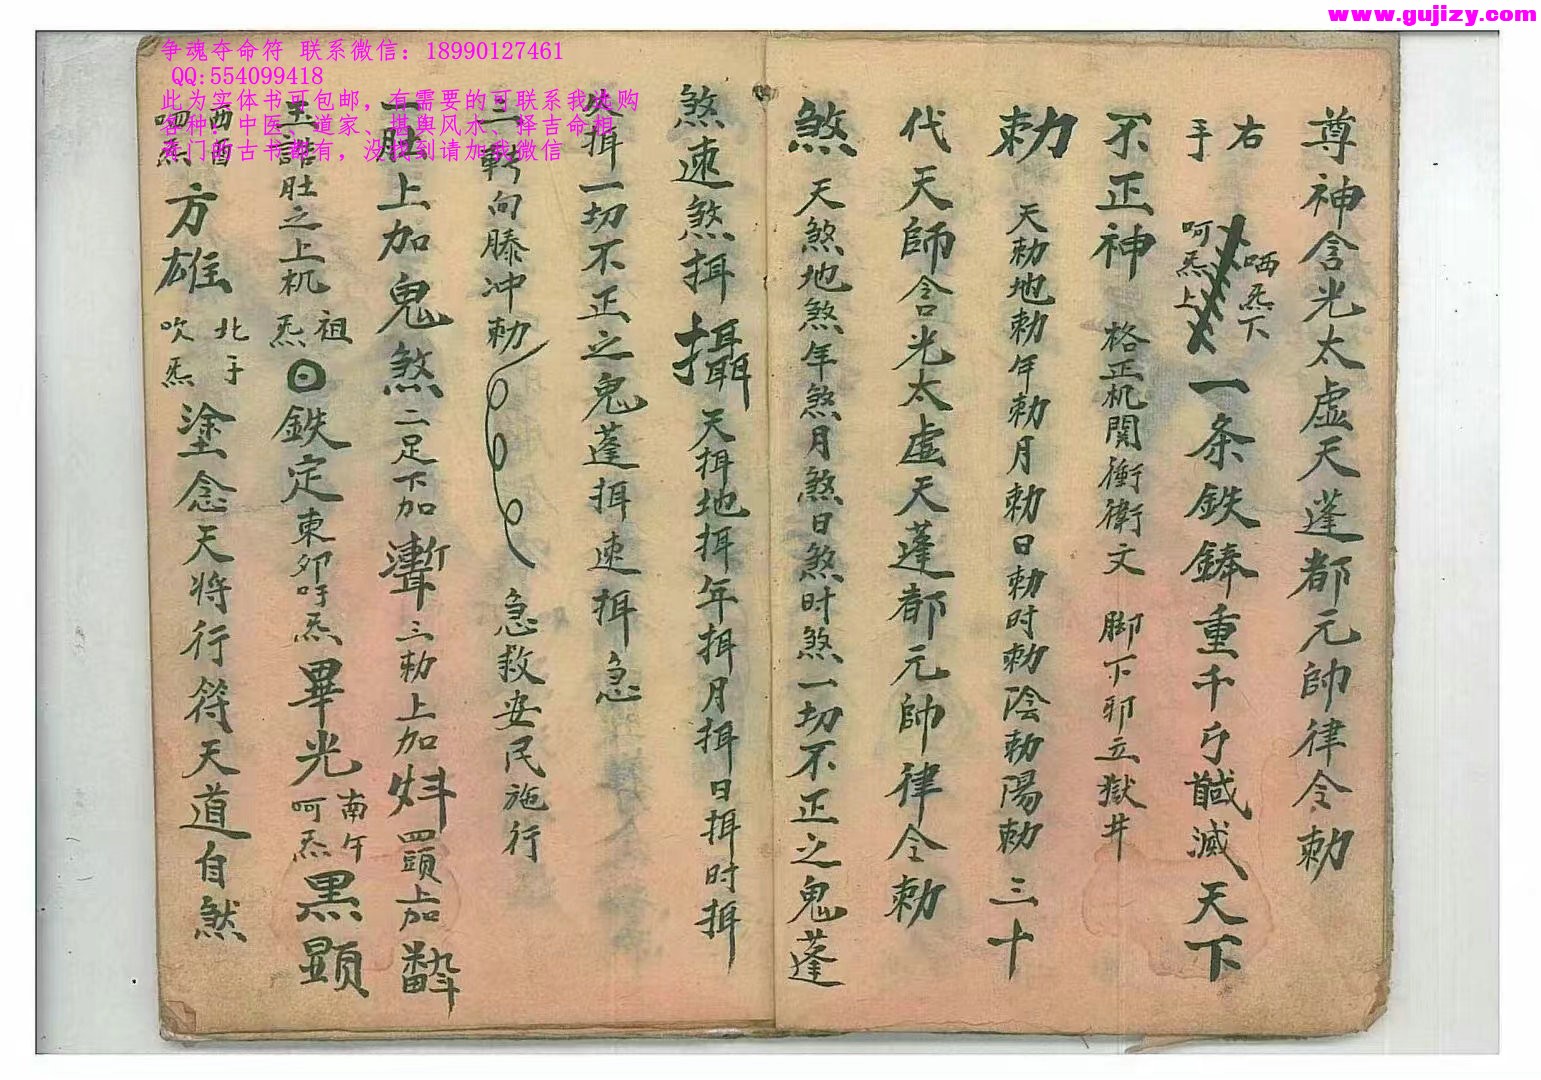 www.gujizy.com
争魂夺命符 联系微信：18990127461
QQ:554099418
此为实体书可包邮，有需要的可联系我选购
各种：中医、道家、堪舆风水、择吉命相
奇门的古书都有，没找到请加我微信
尊神含光太虚天蓬都元帥律令勅
右手 哂炁下 呵炁上 一条鉄鋒重千斤 滅天下
不正神 格正机関衝衛文 脚下邪立獄井
勅 天勅地勅年勅月勅日勅时勅陰勅陽勅 三十
代天師含光太虚天蓬都元帥律令勅
煞 天煞地煞年煞月煞日煞时煞一切不正之鬼蓬
煞速煞挕 攝 天挕地挕年挕月挕日挕时挕
挕一切不正之鬼蓬挕速挕急
三 向滕冲勅 急救安民施行
上加鬼煞 二足下加 三勅上加 四頭上加
肚之上机 祖炁 鉄定 東卯吁炁 畢光 南午呵炁 黑顕
西酉哂炁 方雄 北子吹炁 塗念天将行符天道自然